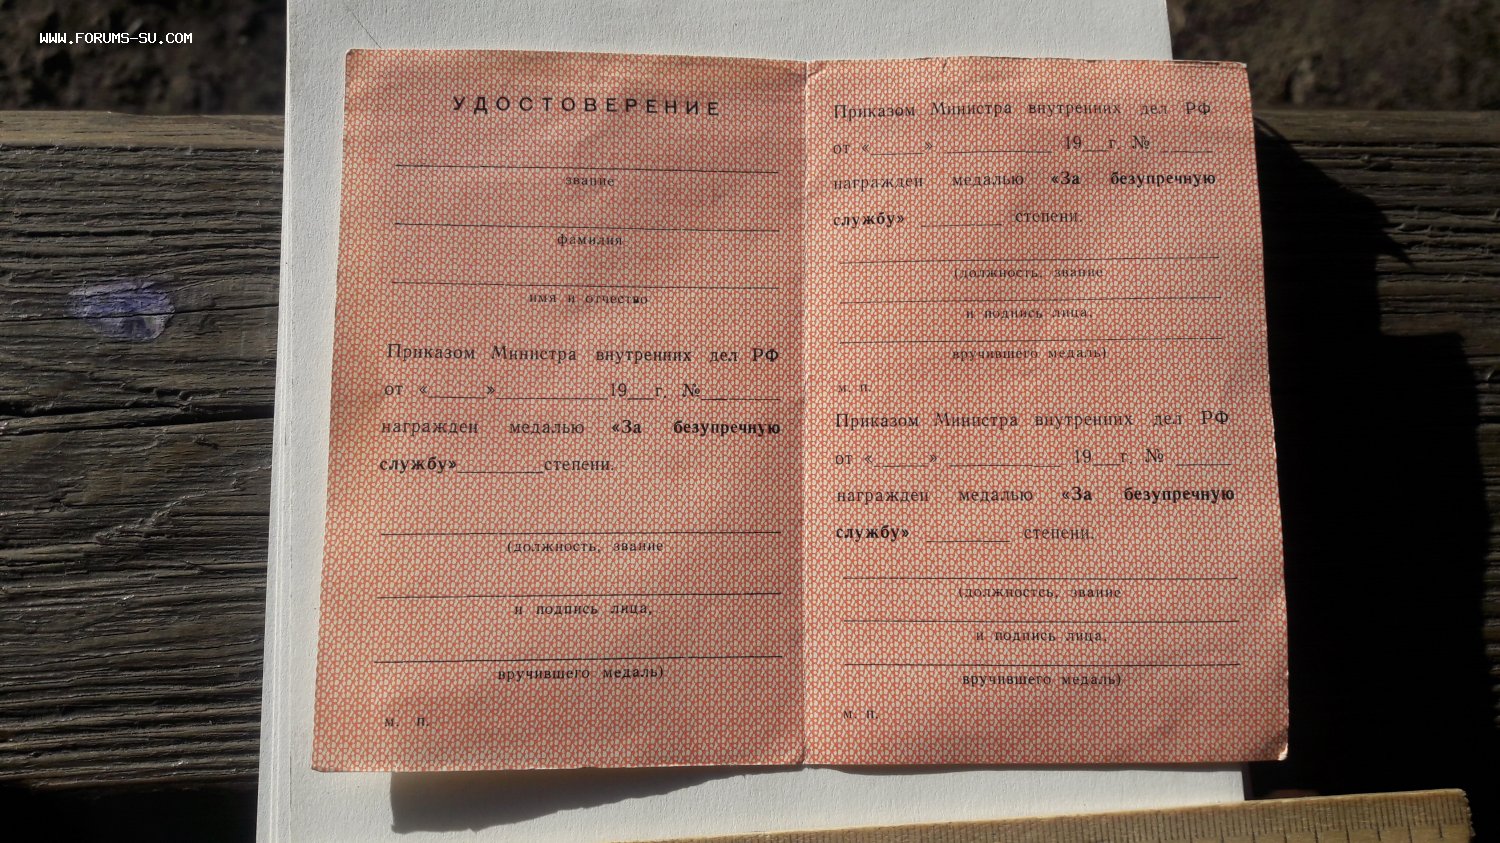 WWW.FORUMS-SU.COM
УДОСТОВЕРЕНИЕ
звание
фамилия
имя и отчество
Приказом Министра внутренних дел РФ
от «______»____________19___г. №_________
награжден медалью «За безупречную
службу»__________степени.
(должность, звание
и подпись лица,
вручившего медаль)
м. п.
Приказом Министра внутренних дел РФ
от «______» ____________ 19___г. № ______
награжден медалью «За безупречную
службу» _________ степени.
(должность, звание
и подпись лица,
вручившего медаль)
м. п.
Приказом Министра внутренних дел РФ
от «______» ____________ 19___г. № ______
награжден медалью «За безупречную
службу» _________ степени.
(должностсь, звание
и подпись лица,
вручившего медаль)
м. п.